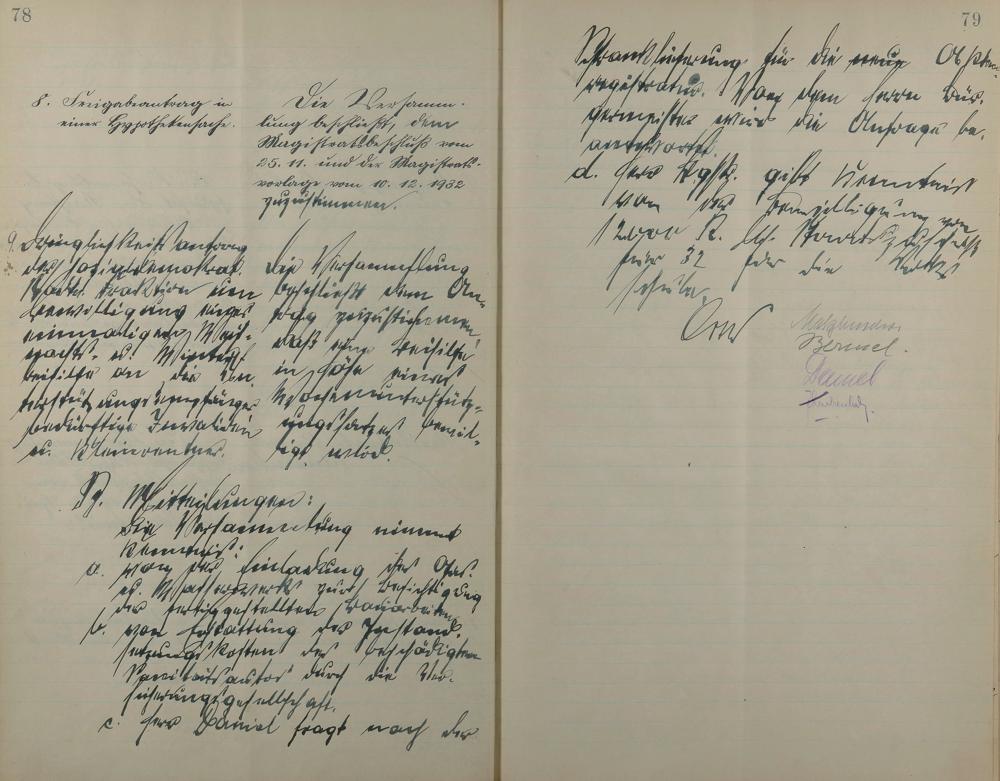 78
8. Freigabeantrag in
einer Hypothekensache.
Die Versamm-
lung beschließt, dem
Magistratsbeschluß vom
25. 11. und der Magistrats-
vorlage vom 10. 12. 1932
zuzustimmen.
9. Dringlichkeitsantrag
der sozialdemokrat.
Fraktion um
Bewilligung einer
einmaligen Weih-
nachts- u. Winter-
beihilfe an die Un-
terstützungsempfänger
bedürftige Invaliden
u. Kleinrentner.
Die Versammlung
beschließt dem An-
trag zuzustimmen
daß eine Beihilfe
in Höhe eines
Wochenunterstütz-
ungssatzes bewil-
ligt wird.
Mitteilungen:
Die Versammlung nimmt
Kenntnis:
a. von der Einladung des Gas-
u. Wasserwerks zur Besichtigung
der fertiggestellten Bauarbeiten
b. von Erstattung der Instand-
setzungskosten des beschädigten
Sanitätsautos durch die Ver-
sicherungsgesellschaft.
c. Herr Daniel fragt nach der
79
Schranklieferung für die neue
registratur. Von dem Herrn Bür-
germeister wird die Anfrage be-
antwortet.
d. Herr gibt Kenntnis
von der Bewilligung von
12000 R.
für 32 für die
schule.
Bernel.
Daniel